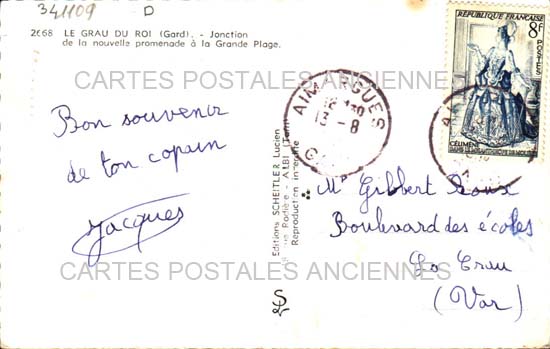 341109 D
2668 LE GRAU DU ROI (Gard). - Jonction
de la nouvelle promenade à la Grande Plage.
CARTES POSTALES ANCIENNES
Bon souvenir
de ton copain
Jacques
Editions SCHEITLER Lucien
Radière - ALBI (Tarn)
Reproduction interdite
AIMARGUES
18 H30
13 - 8
RÉPUBLIQUE FRANÇAISE
8F
POSTES
CÉLIMÈNE
Mr Gilbert
Boulevard des écoles
La Crau
(Var)
CARTES POSTALES ANCIENNES